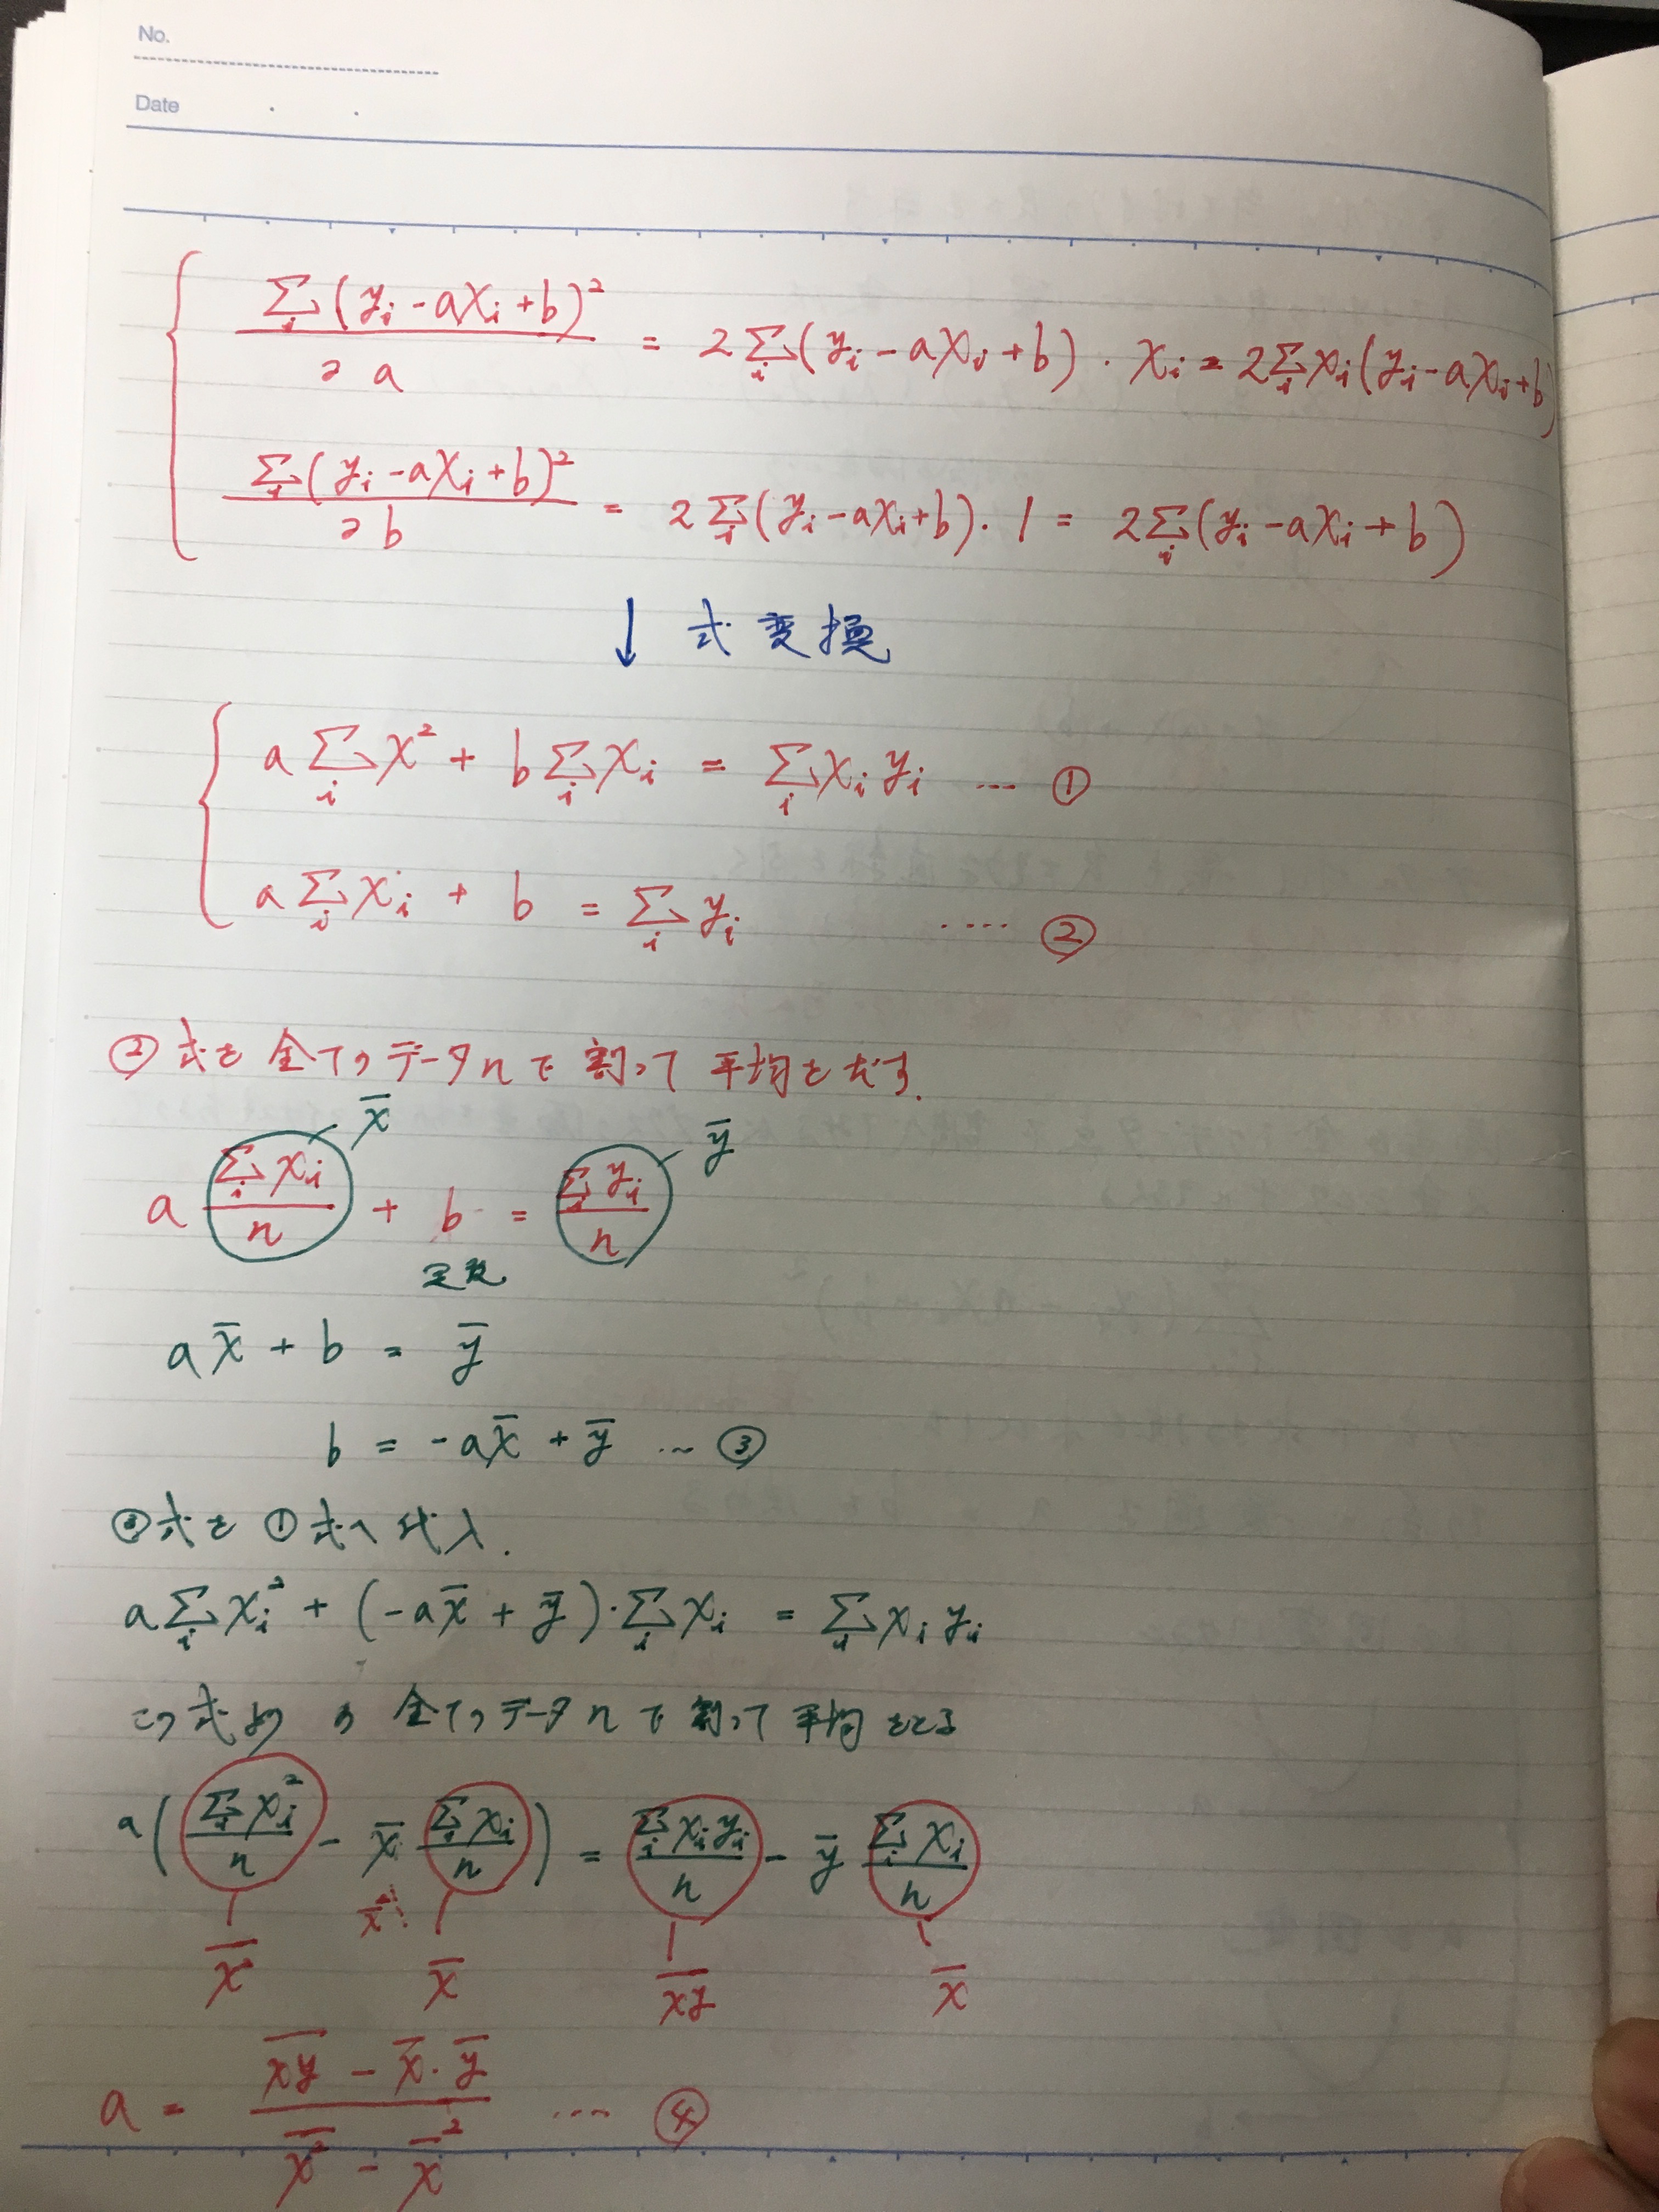 No.
Date
Σi(yi-axi+b)²/∂a = 2Σi(yi-axi+b)・xi = 2Σixi(yi-axi+b)
Σi(yi-axi+b)²/∂b = 2Σi(yi-axi+b)・1 = 2Σi(yi-axi+b)
↓ 式変換
aΣix² + bΣixi = Σixiyi … ①
aΣixi + b = Σiyi …. ②
②式を全てのデータnで割って平均をだす.
x̄ ȳ
a Σixi/n + b = Σiyi/n
定数
ax̄ + b = ȳ
b = -ax̄ + ȳ … ③
③式を①式へ代入.
aΣixi² + (-ax̄ + ȳ)・Σixi = Σixiyi
この式も 全てのデータnで割って平均をとる
a(Σixi²/n - x̄ Σixi/n) = Σixiyi/n - ȳ Σixi/n
x̄² x̄ x̄ȳ x̄
a = (x̄ȳ - x̄・ȳ)/(x̄² - x̄²) … ④